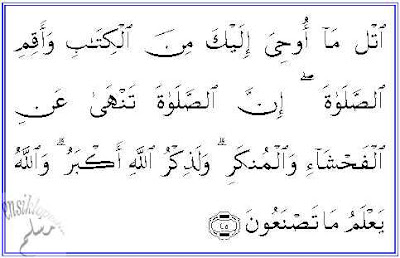 ٱتْلُ مَآ أُوحِىَ إِلَيْكَ مِنَ ٱلْكِتَٰبِ وَأَقِمِ
ٱلصَّلَوٰةَ ۖ إِنَّ ٱلصَّلَوٰةَ تَنْهَىٰ عَنِ
ٱلْفَحْشَآءِ وَٱلْمُنكَرِ ۗ وَلَذِكْرُ ٱللَّهِ أَكْبَرُ ۗ وَٱللَّهُ
يَعْلَمُ مَا تَصْنَعُونَ ﴿٤٥﴾